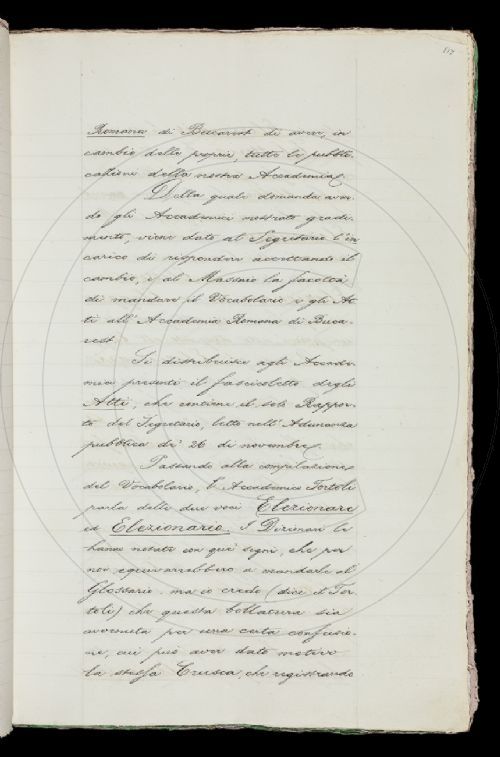 117
Romana di Bucarest di avere, in
cambio delle proprie, tutte le pubbli-
cazioni della nostra Accademia.
Della quale domanda aven-
do gli Accademici mostrato gradi-
mento, viene dato al Segretario l'in
carico di rispondere accettando il
cambio, e al Massaio la facoltà
di mandare il Vocabolario e gli At
ti all'Accademia Romana di Buca-
rest.
Si distribuisce agli Accade-
mici presenti il fascicoletto degli
Atti, che contiene il solo Rappor-
to del Segretario, letto nell'Adunanza
pubblica de' 26 di novembre.
Passando alla compilazione
del Vocabolario, l'Accademico Tortoli
parla delle due voci Elezionare
ed Elezionario. I Dizionari le
hanno notate con quei segni, che per
noi equivarrebbero a mandarle al
Glossario. ma io credo (dice il Tor
toli) che questa bollatura sia
avvenuta per una certa confusio-
ne, cui può aver dato motivo
la stessa Crusca, che registrando